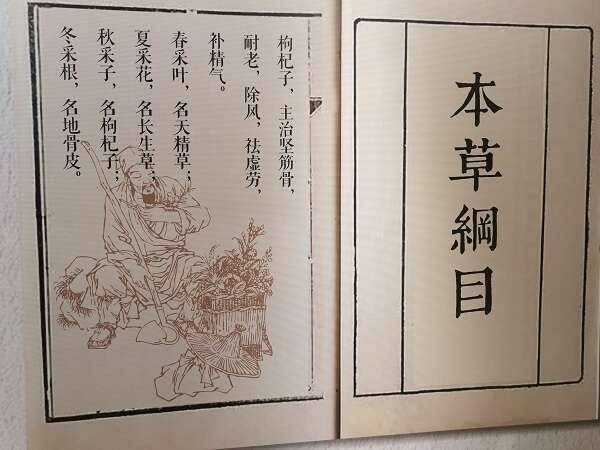 本草綱目
枸杞子，主治坚筋骨，
耐老，除风，祛虚劳，
补精气。
春采叶，名天精草；
夏采花，名长生草；
秋采子，名枸杞子；
冬采根，名地骨皮。